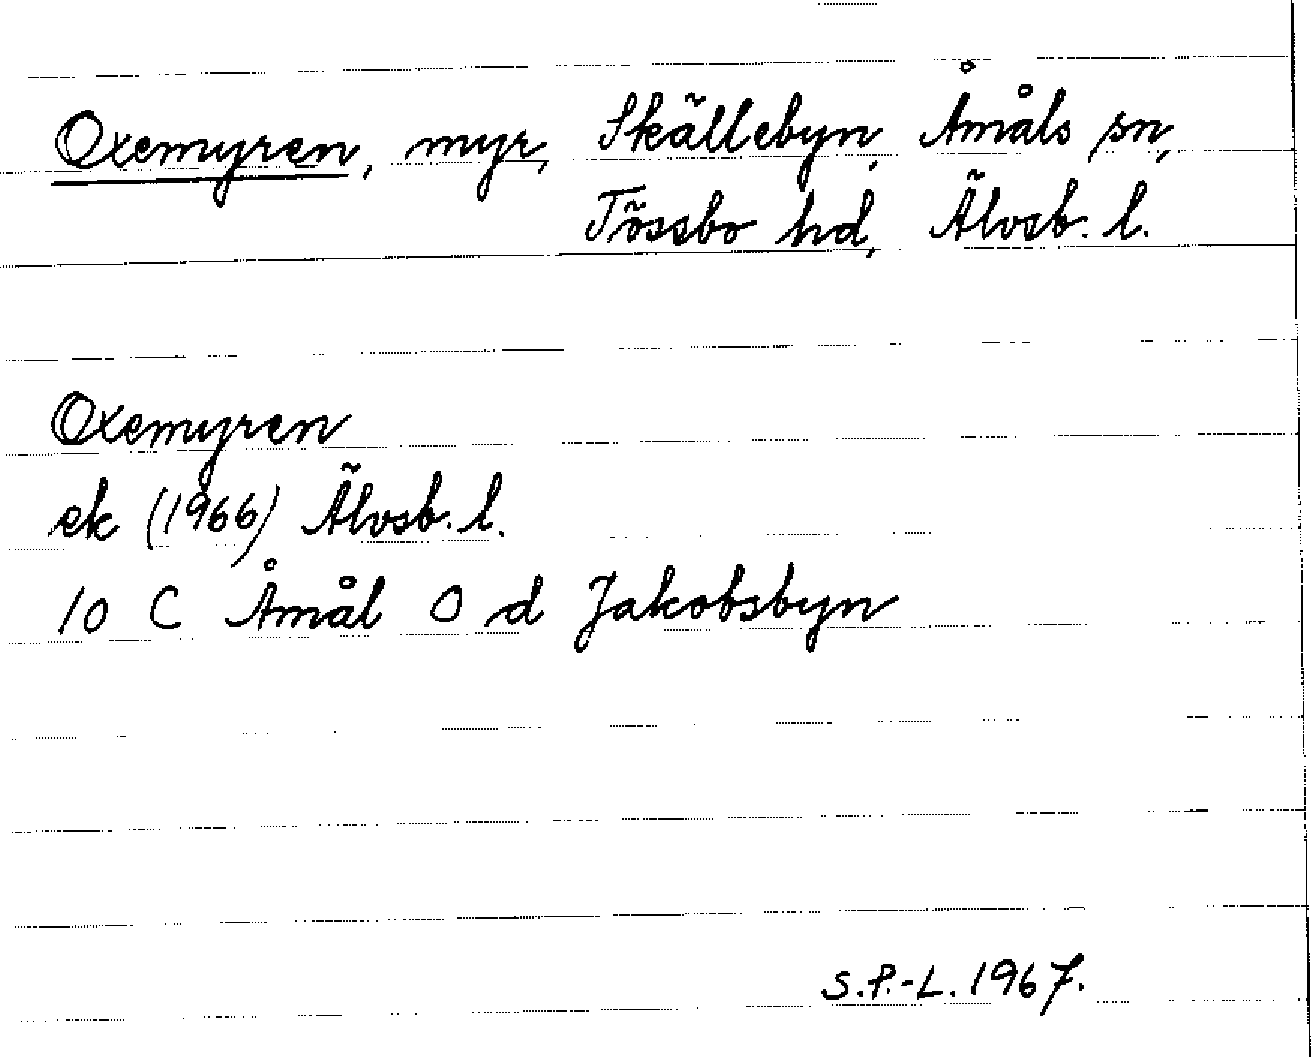 Oxemyren, myr, Skällebyn, Åmåls sn,
Tössbo hd, Älvsb. l.
Oxemyren
ek (1966) Älvsb. l.
10 C Åmål O d Jakobsbyn
S.P.-L. 1967.